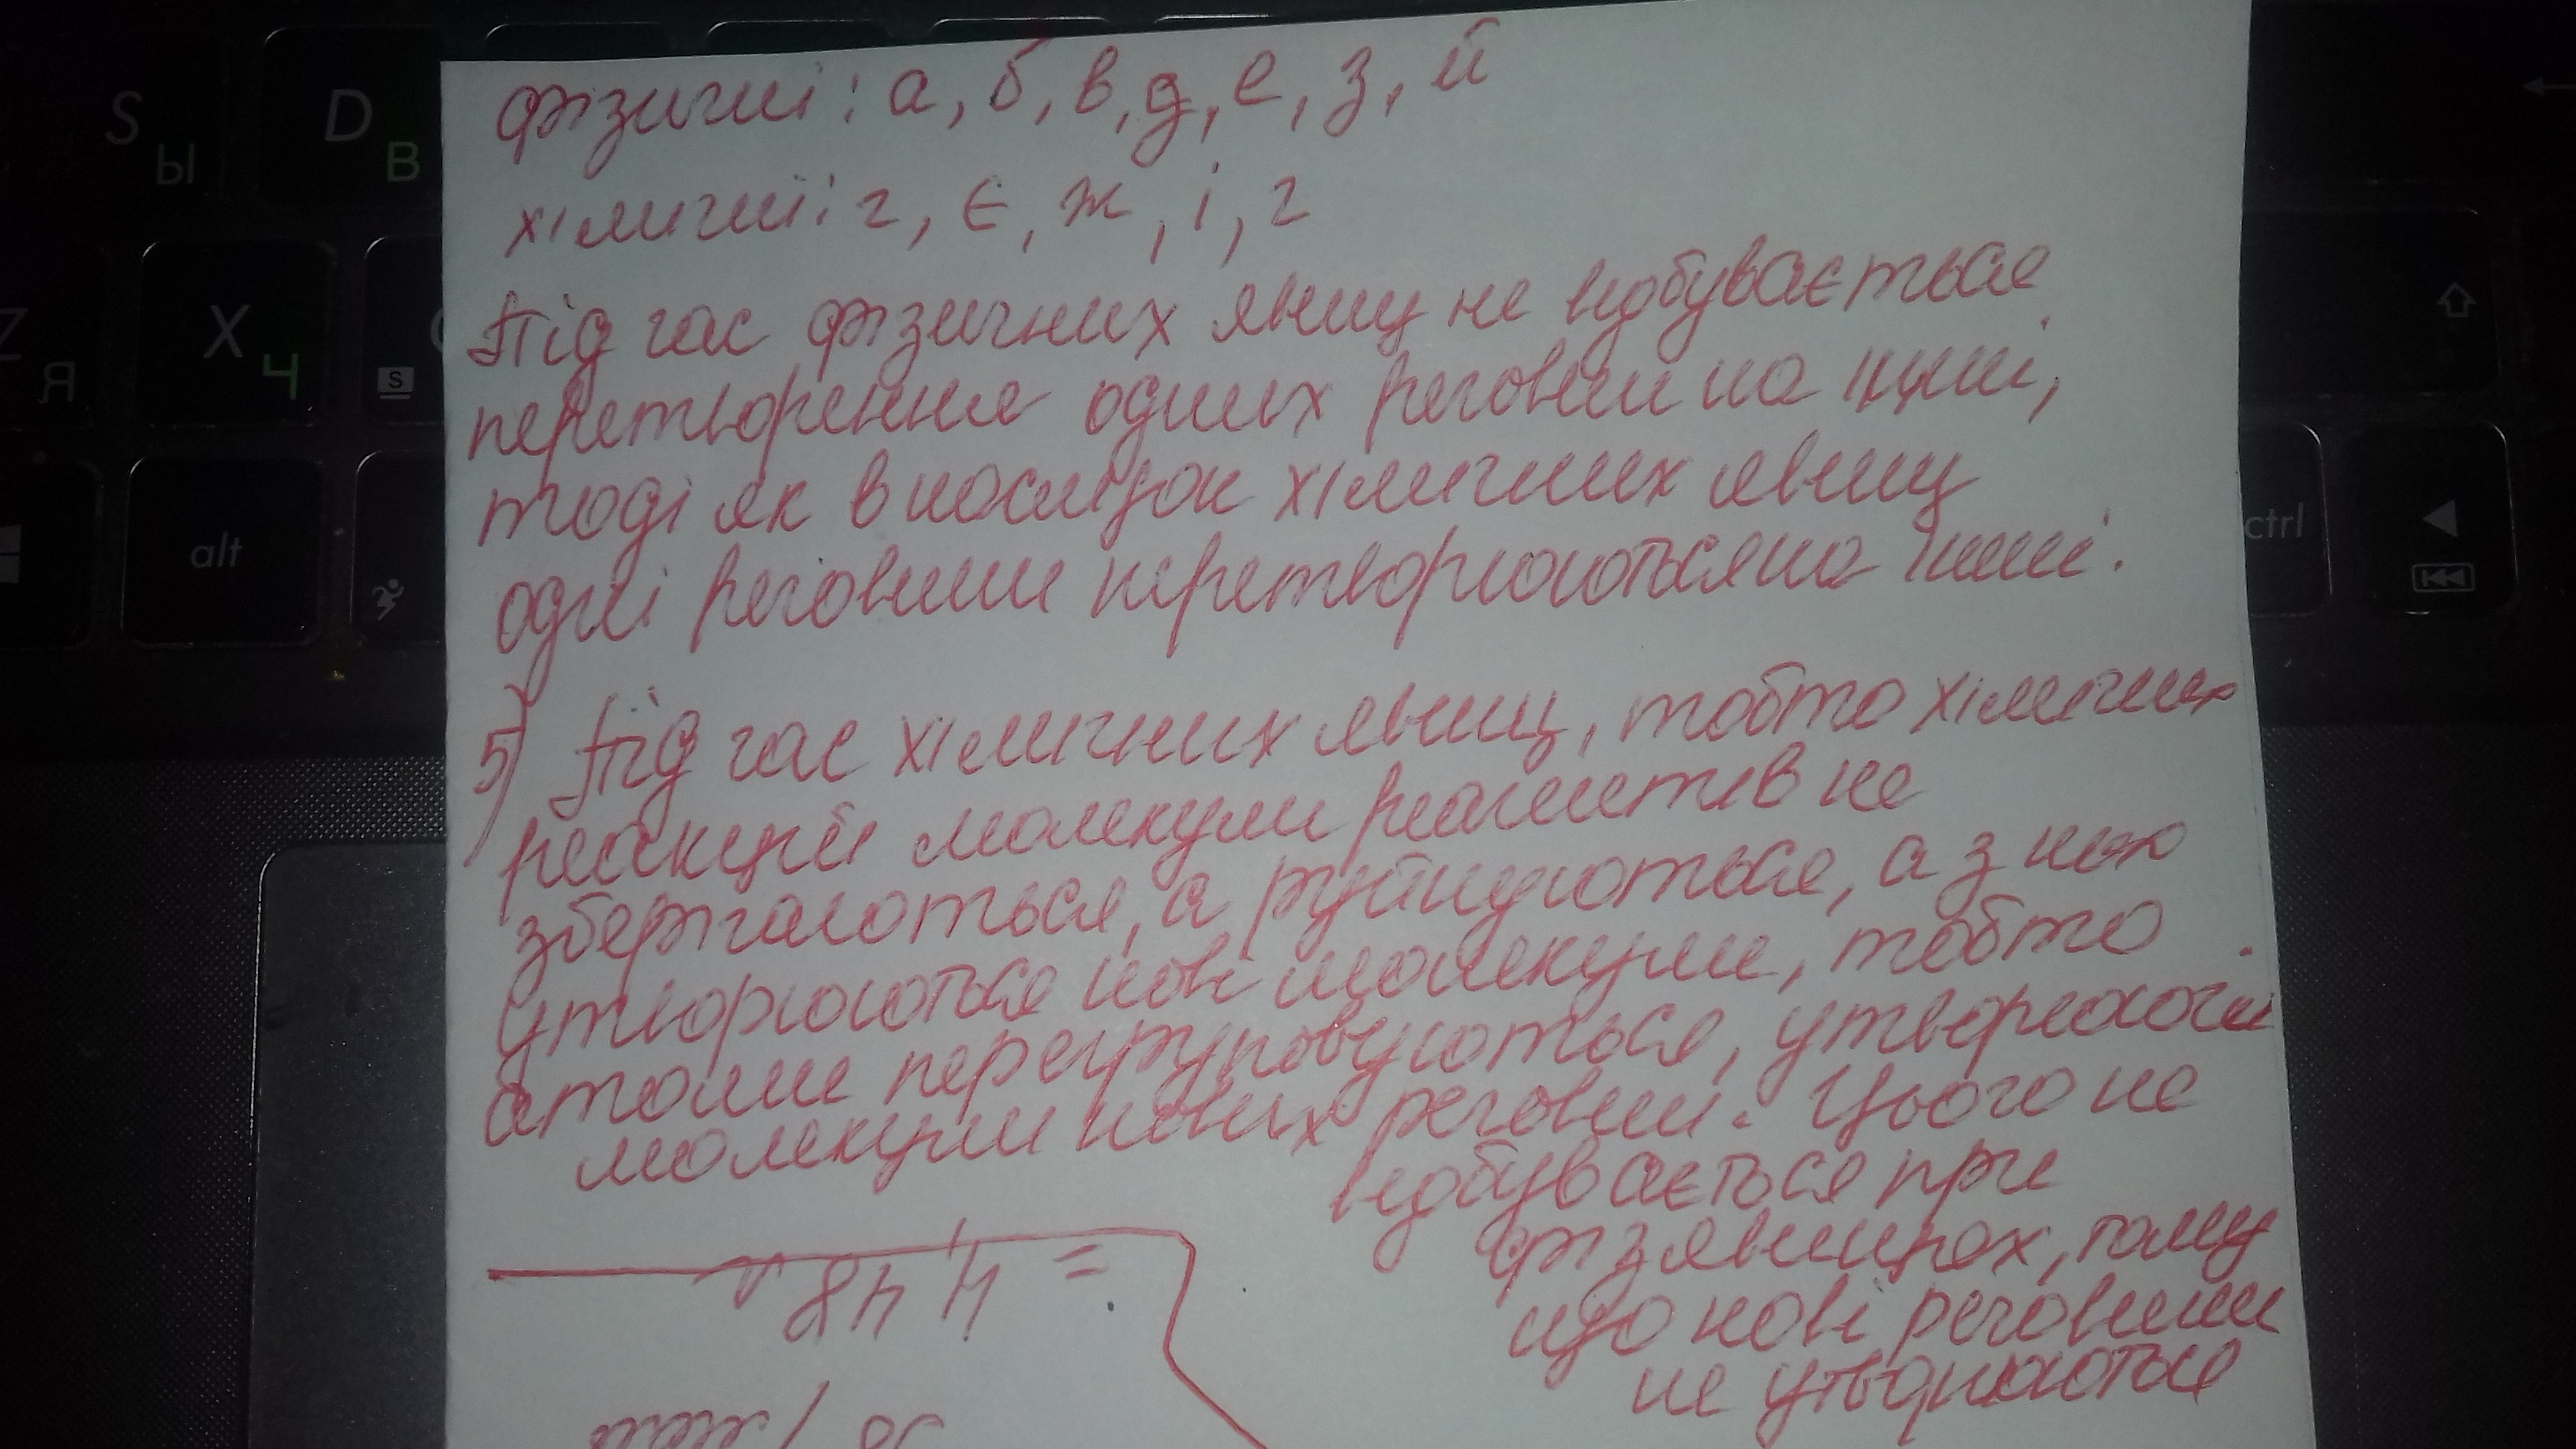 фізичні: а, б, в, д, е, з, й
хімічні: г, є, ж, і, г
Під час фізичних явищ не відбувається
перетворення одних речовин на інші,
тоді як внаслідок хімічних явищ
одні речовини перетворюються на інші.
5) Під час хімічних явищ, тобто хімічних
реакцій молекули реагентів не
зберігаються, а руйнуються, а з них
утворюються нові молекули, тобто
атоми перегруповуються, утворюючи
молекули нових речовин. Цього не
відбувається при
фіз явищах, тому
що нові речовини
не утворюються
= 4,48
S Ы
D В
Z Я
X Ч
S
alt
ctrl